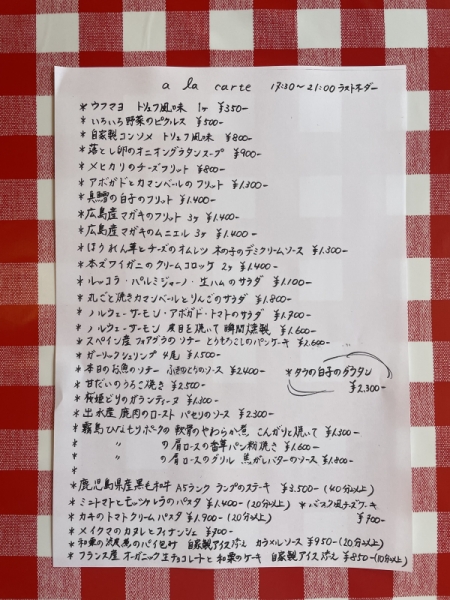 a la carte 17:30〜21:00 ラストオーダー
* ウフマヨ トリュフ風味 1ヶ ¥350-
* いろいろ野菜のピクルス ¥500-
* 自家製コンソメ トリュフ風味 ¥800-
* 落とし卵のオニオングラタンスープ ¥900-
* メヒカリのチーズフリット ¥800-
* アボガドとカマンベールのフリット ¥1.300-
* 真鱈の白子のフリット ¥1.400-
* 広島産マガキのフリット 3ヶ ¥1.400-
* 広島産マガキのムニエル 3ヶ ¥1.400-
* ほうれん草とチーズのオムレツ 木の子のデミクリームソース ¥1.300-
* 本ズワイガニのクリームコロッケ 2ヶ ¥1.400-
* ルッコラ・パルミジャーノ・生ハムのサラダ ¥1.100-
* 丸ごと焼きカマンベールとりんごのサラダ ¥1.800-
* ノルウェーサーモン・アボガド・トマトのサラダ ¥1.700-
* ノルウェーサーモン 皮目を焼いて 瞬間燻製 ¥1.600-
* スペイン産 フォアグラのソテー とうもろこしのパンケーキ ¥2.600-
* ガーリックシュリンプ 4尾 ¥1.500-
* 本日のお魚のソテー のソース ¥2.400-
* タラの白子のグラタン ¥2.300-
* 甘だいのうろこ焼き ¥2.500-
* 桜姫どりのガランティーヌ ¥1.300-
* 出水産 鹿肉のロースト パセリのソース ¥2.300-
* 霧島ひなもりポークの 軟骨のやわらか煮 こんがりと焼いて ¥1.300-
* 〃 〃 の肩ロースの香草パン粉焼き ¥1.600-
* 〃 〃 の肩ロースのグリル 焦がしバターのソース ¥1.800-
* 鹿児島県産黒毛和牛 A5ランク ランプのステーキ ¥3.500-(40分以上)
* ミニトマトとモッツァレラのパスタ ¥1.400-(20分以上)
* バスク風チーズケーキ ¥700-
* カキのトマトクリームパスタ ¥1.900-(20分以上)
* メイクマのカヌレとフィナンシェ ¥700-
* 和栗の渋皮煮のパイ包み 自家製アイス添え カラメルソース ¥950-(20分以上)
* フランス産 オーガニック生チョコレートと和栗のケーキ 自家製アイス添え ¥850-(10分以上)